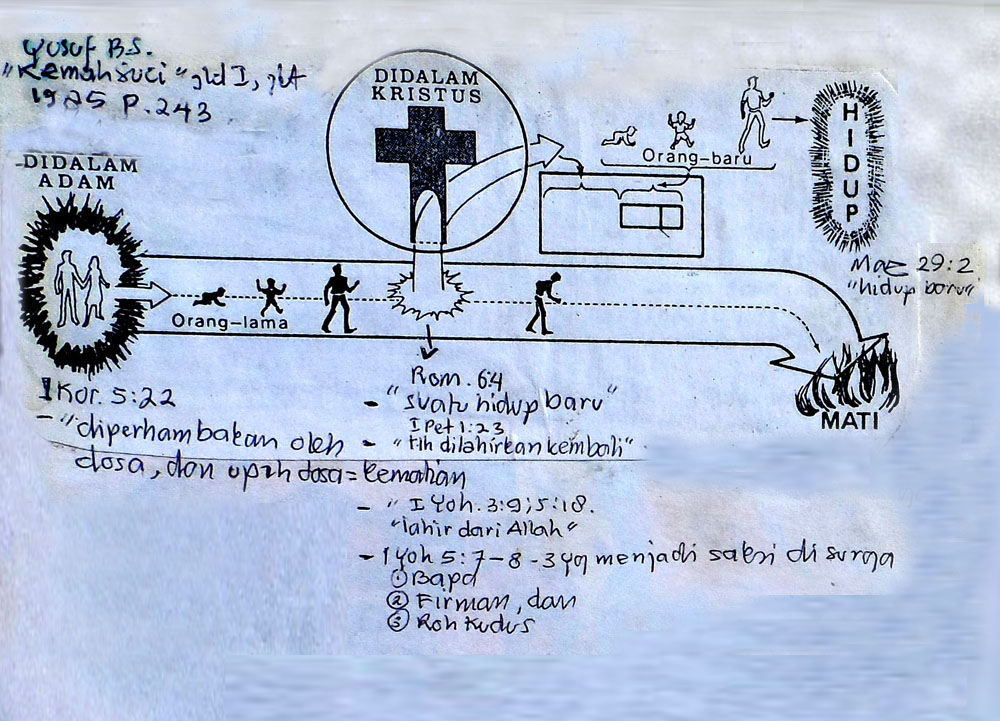 Yusuf B.S.
"Kemah suci" jld I, jkt
1925 P. 243
DIDALAM
ADAM
DIDALAM
KRISTUS
Orang-baru
HIDUP
Mat 29:2.
"hidup baru"
Orang-lama
MATI
1 Kor. 5:22
- "diperhambakan oleh
dosa, dan upah dosa = kematian
Rom. 6:4
- "suatu hidup baru"
I Pet 1:23
- "tlh dilahirkan kembali"
- " I Yoh. 3:9; 5:18.
"lahir dari Allah"
- 1 Yoh 5:7-8 - 3 yg menjadi saksi di surga
① Bapa
② Firman, dan
③ Roh Kudus